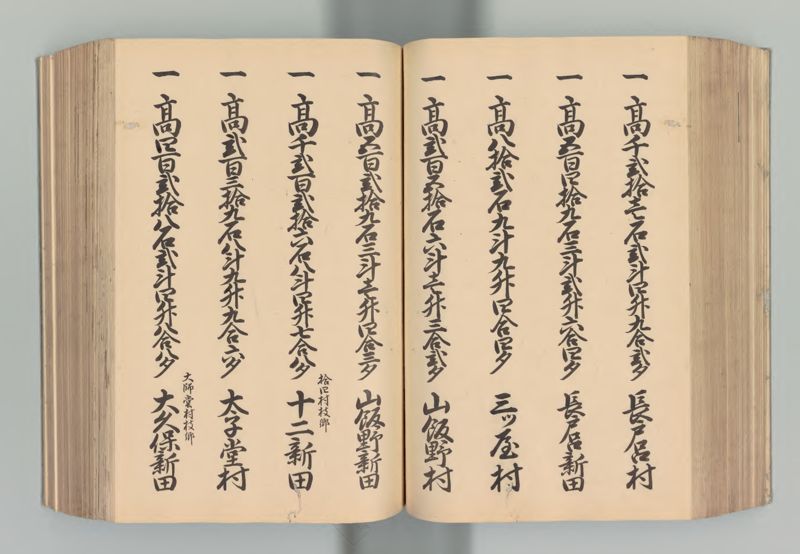 一 高千弐拾壱石弐斗四升九合弐夕 長戸呂村
一 高五百四拾九石三斗弐升六合四夕 長戸呂新田
一 高八拾弐石九斗九升四合四夕 三ッ屋村
一 高弐百五拾石六斗壱升三合弐夕 山飯野村
一 高五百弐拾九石三斗壱升四合三夕 山飯野新田
一 高千弐百弐拾六石八斗四升七合八夕 拾四村枝郷 十二新田
一 高弐百三拾九石八斗九升九合六夕 太子堂村
一 高四百弐拾八石弐斗四升八合八夕 大師堂村枝郷 大久保新田